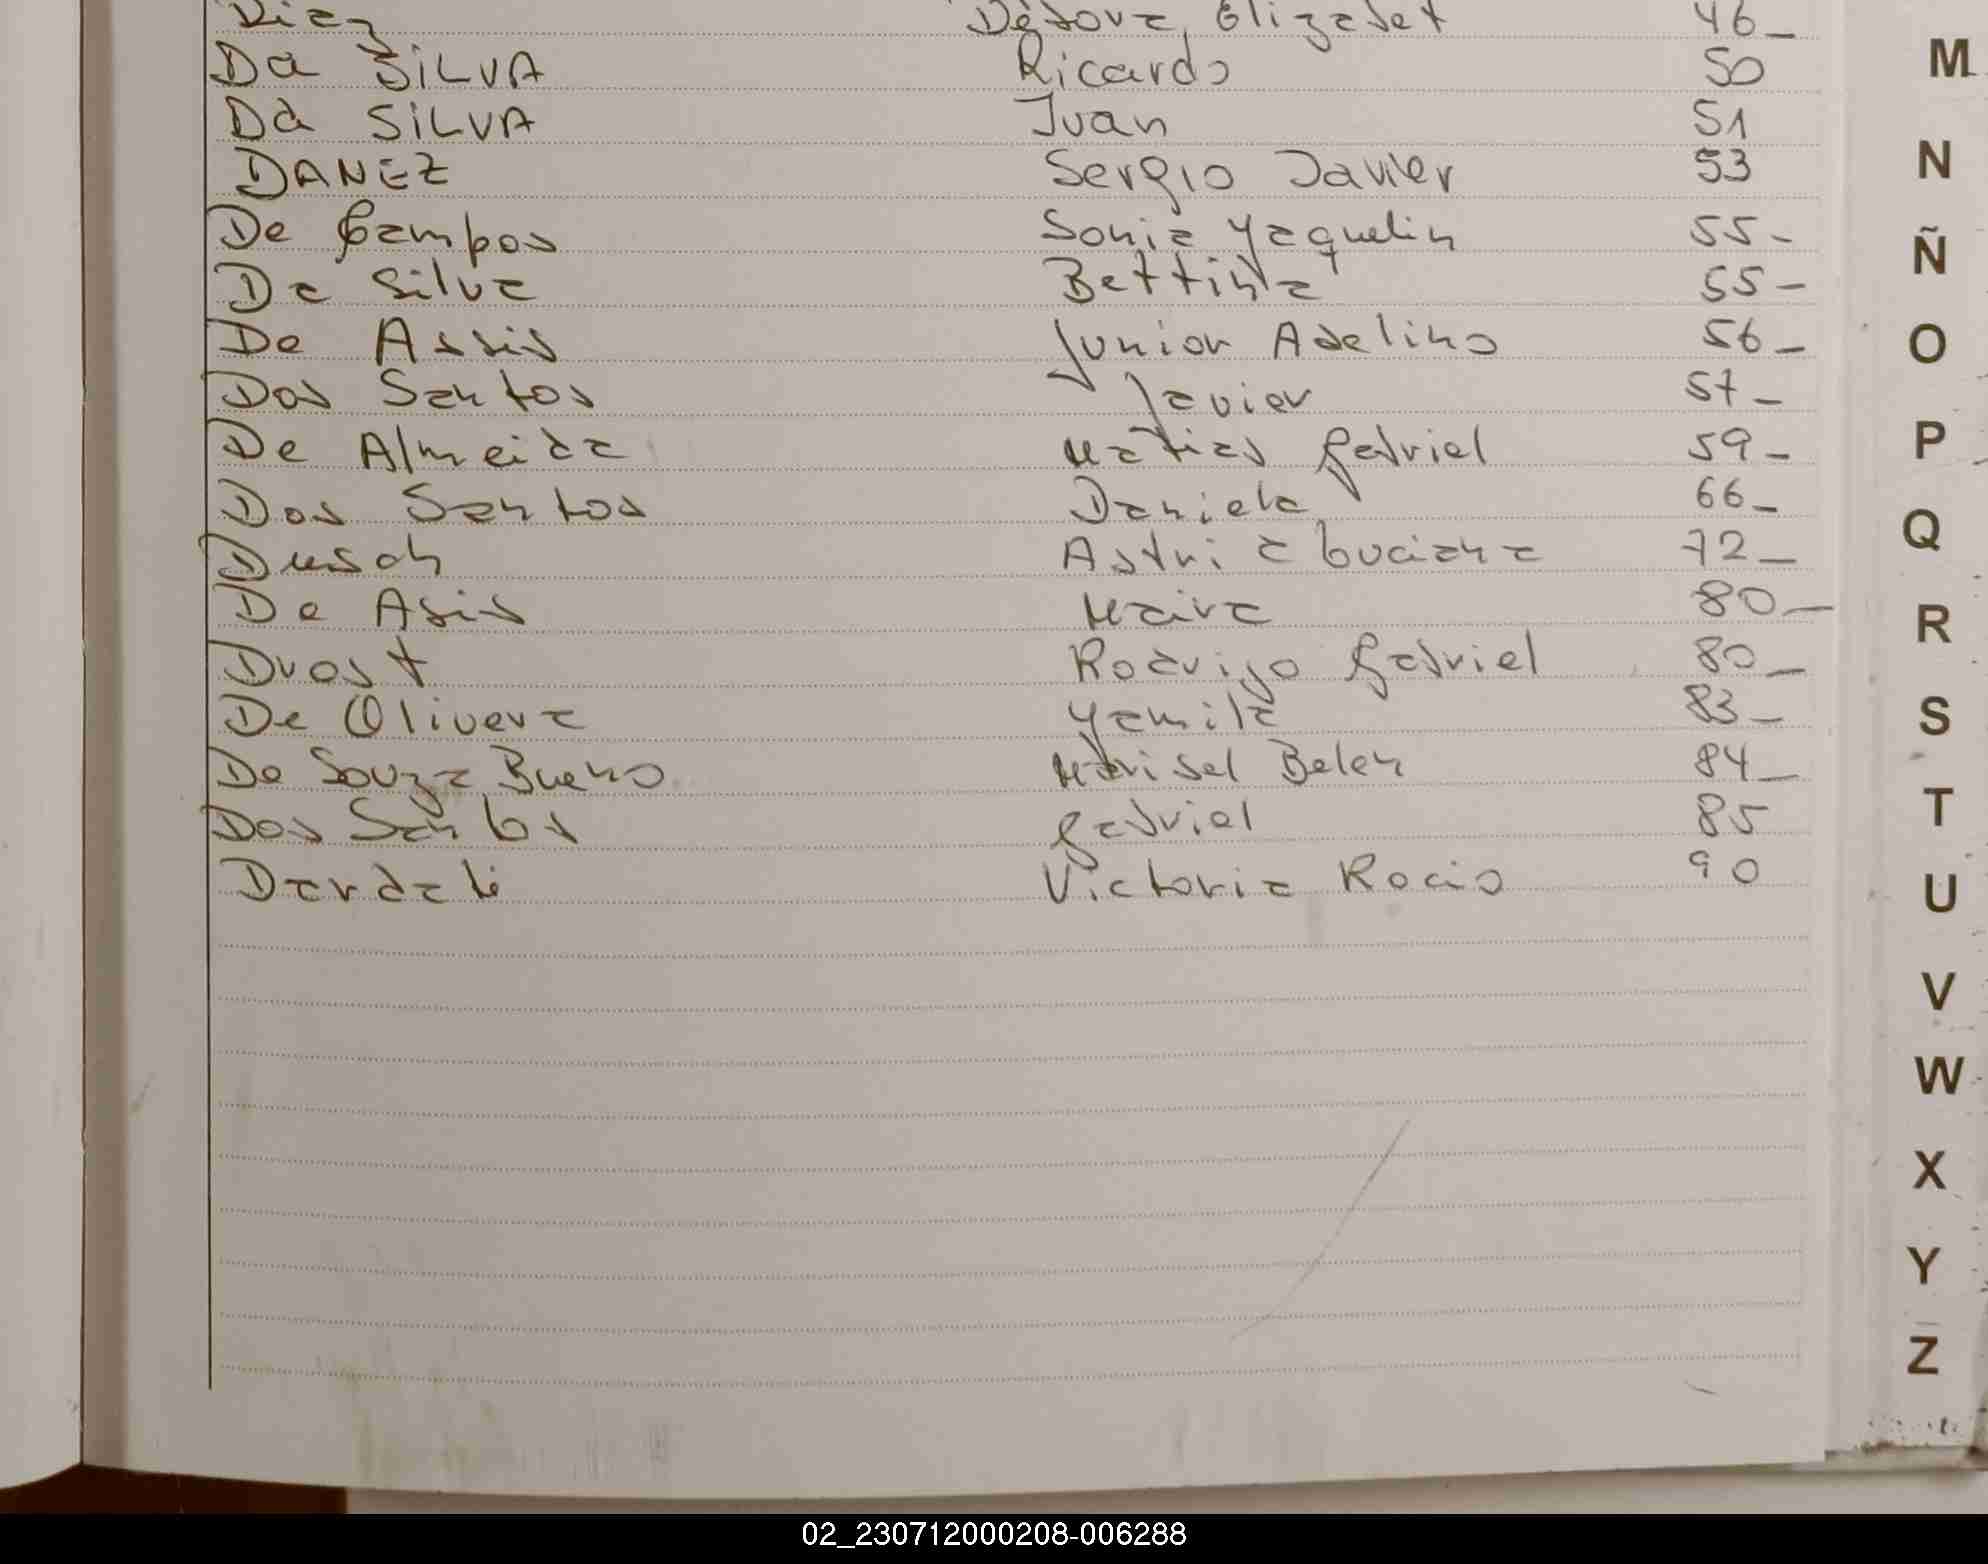 Diaz Débora Elizabet 46_
Da SiLVA Ricardo 50
Da SiLVA Ivan 51
DANEZ Sergio Javier 53
De Campos Sonia Yaquelin 55-
Da Silva Bettina 55-
De Assis Junior Adelino 56_
Dos Santos Javier 57_
De Almeida Matias Gabriel 59_
Dos Santos Daniela 66_
Dusch Luciana 72_
De Asis Maira 80_
Drost Rodrigo Gabriel 80_
De Olivera Yamila 83_
De Souza Bueno Marisel Belen 84_
Dos Santos Gabriel 85
Dardati Victoria Rocio 90
M
N
Ñ
O
P
Q
R
S
T
U
V
W
X
Y
Z
02_230712000208-006288